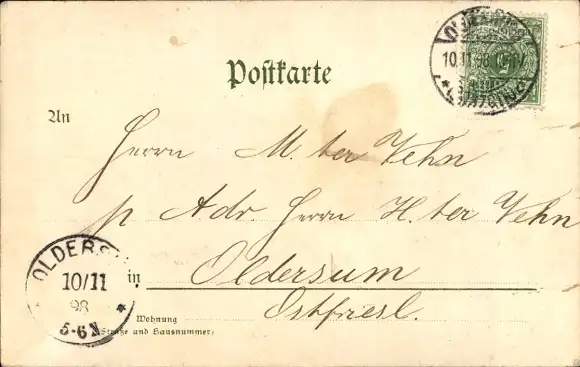 Postkarte
10.11.98
An
Herrn M. ter Vehn
p Adr. Herrn H. ter Vehn
OLDERS
10/11
98
5-6 N
in Oldersum
Ostfriesl.
Wohnung
(Straße und Hausnummer)